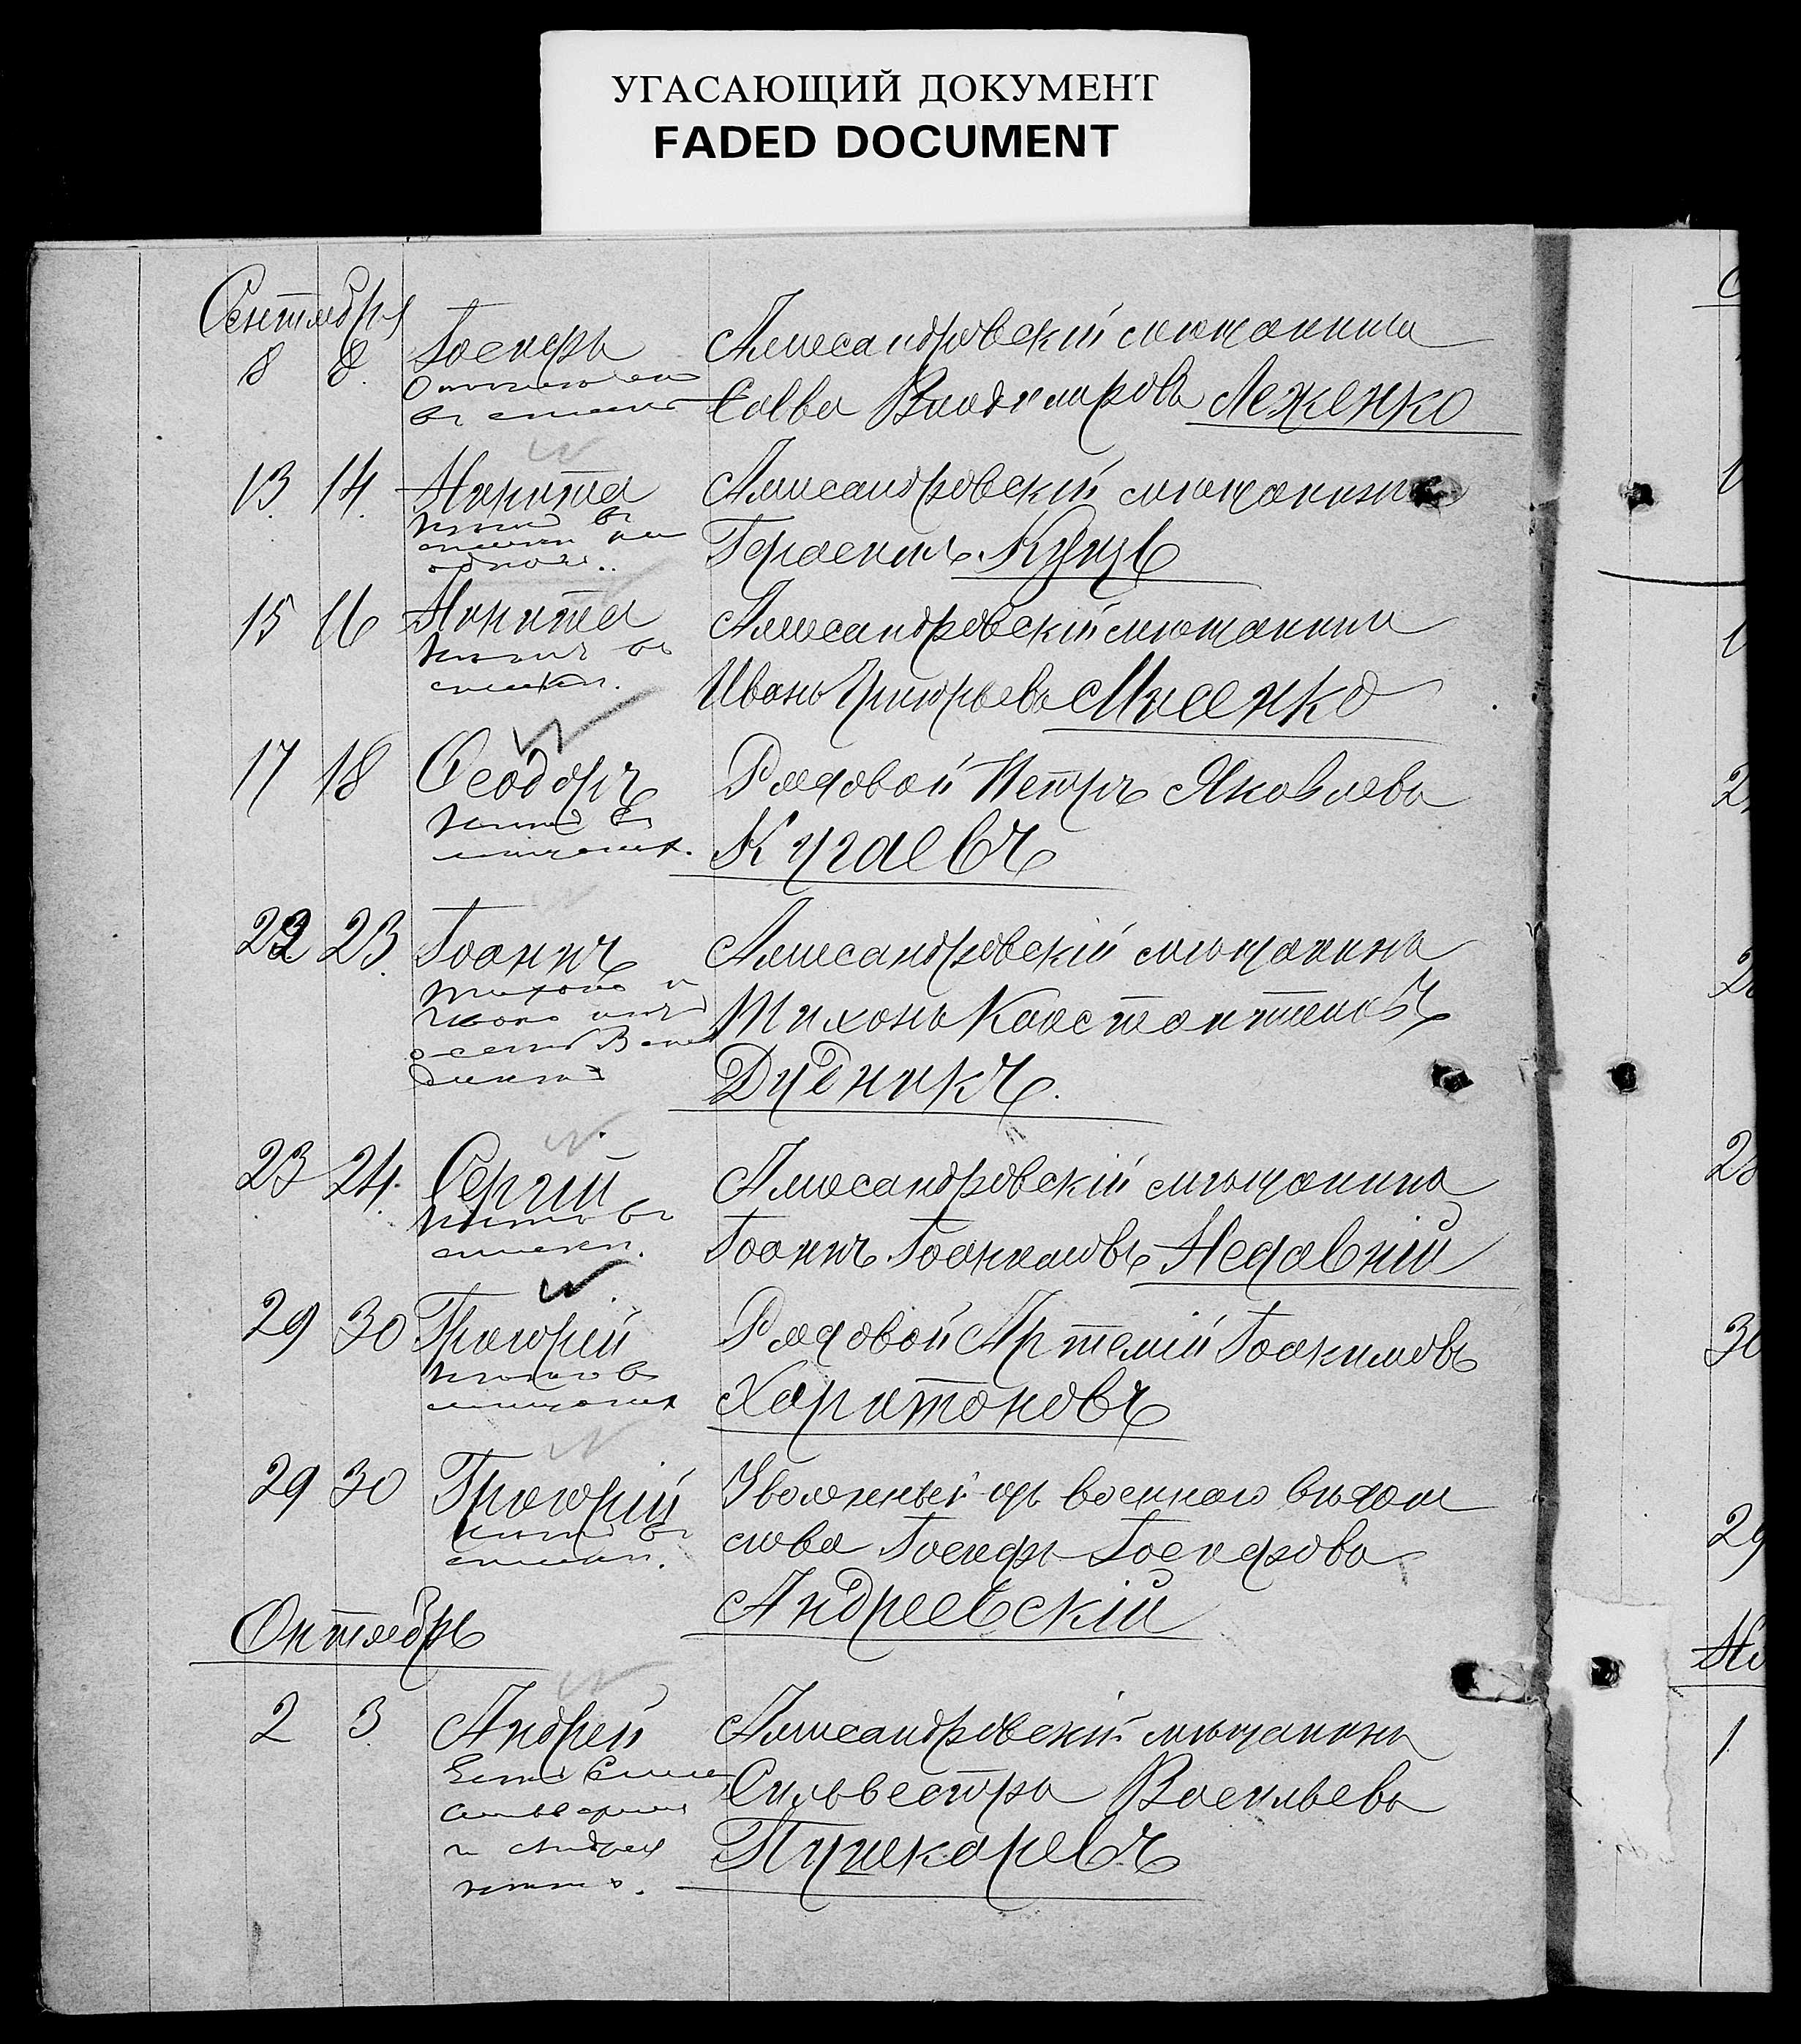 УГАСАЮЩИЙ ДОКУМЕНТ
FADED DOCUMENT
Сентябрь
8 8. Іосифъ Александровскій мѣщанинъ
Савва Владиміровъ Леженко
13. 14. Никита Александровскій мѣщанинъ
Герасимъ Куцъ
15 16 Никита Александровскій мѣщанинъ
нѣтъ въ
списках.
Иванъ Григорьевъ Мисенко
17 18 Ѳеодоръ Рядовой Петръ Яковлевъ
нѣтъ въ
Кугаевъ
22 23. Іоаннъ Александровскій мѣщанинъ
Тихонъ Константиновъ
Дудникъ.
23 24. Сергій Александровскій мѣщанинъ
нѣтъ въ
списках.
Іоаннъ Іоанновъ Недавній
29 30 Григорій Рядовой Артемій Іоакимовъ
нѣтъ въ
Харитоновъ
29 30 Григорій Уволенный изъ военнаго вѣдом
нѣтъ въ
списках.
ства Іосифъ Іосифовъ
Андреевскій
Октябрь
2 3. Андрей Александровскій мѣщанинъ
Сильвестръ Васильевъ
и Андрея
нѣтъ.
Пушкаревъ
29
1.